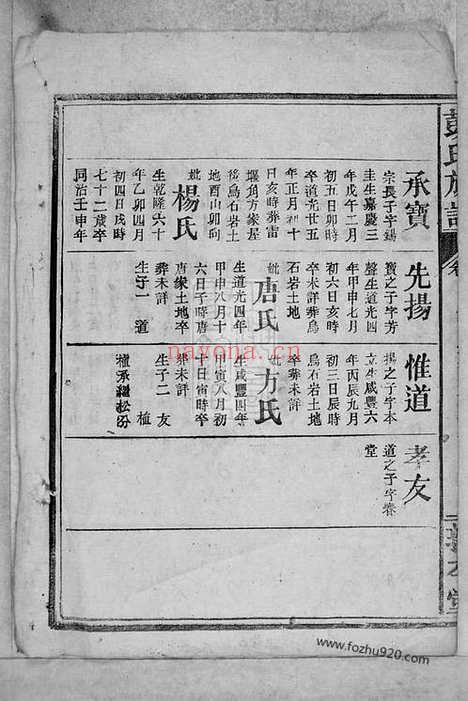 彭氏族譜
承寶
宗長子字錫
圭生嘉慶三
年戊午二月
初五日卯時
卒道光廿五
年正月初十
日亥時葬雷
堰角方家屋
後烏石岩土
地酉山卯向
妣楊氏
生乾隆六十
年乙卯四月
初四日戌時
七十二歲卒
同治壬申年
先揚
寶之子字芳
聲生道光四
年甲申七月
初六日亥時
卒未詳葬烏
石岩土地
妣唐氏
生道光四年
甲申八月十
六日子時唐
家土地卒
葬未詳
生子一 道
惟道
揚之子字本
立生咸豐六
年丙辰九月
初三日辰時
卒葬未詳
烏石岩土地
妣方氏
生咸豐四年
甲寅八月初
十日寅時卒
葬未詳
生子二 友
植
植承繼松份
孝友
道之子字春
堂
nayona.cn
www.fozhu920.com